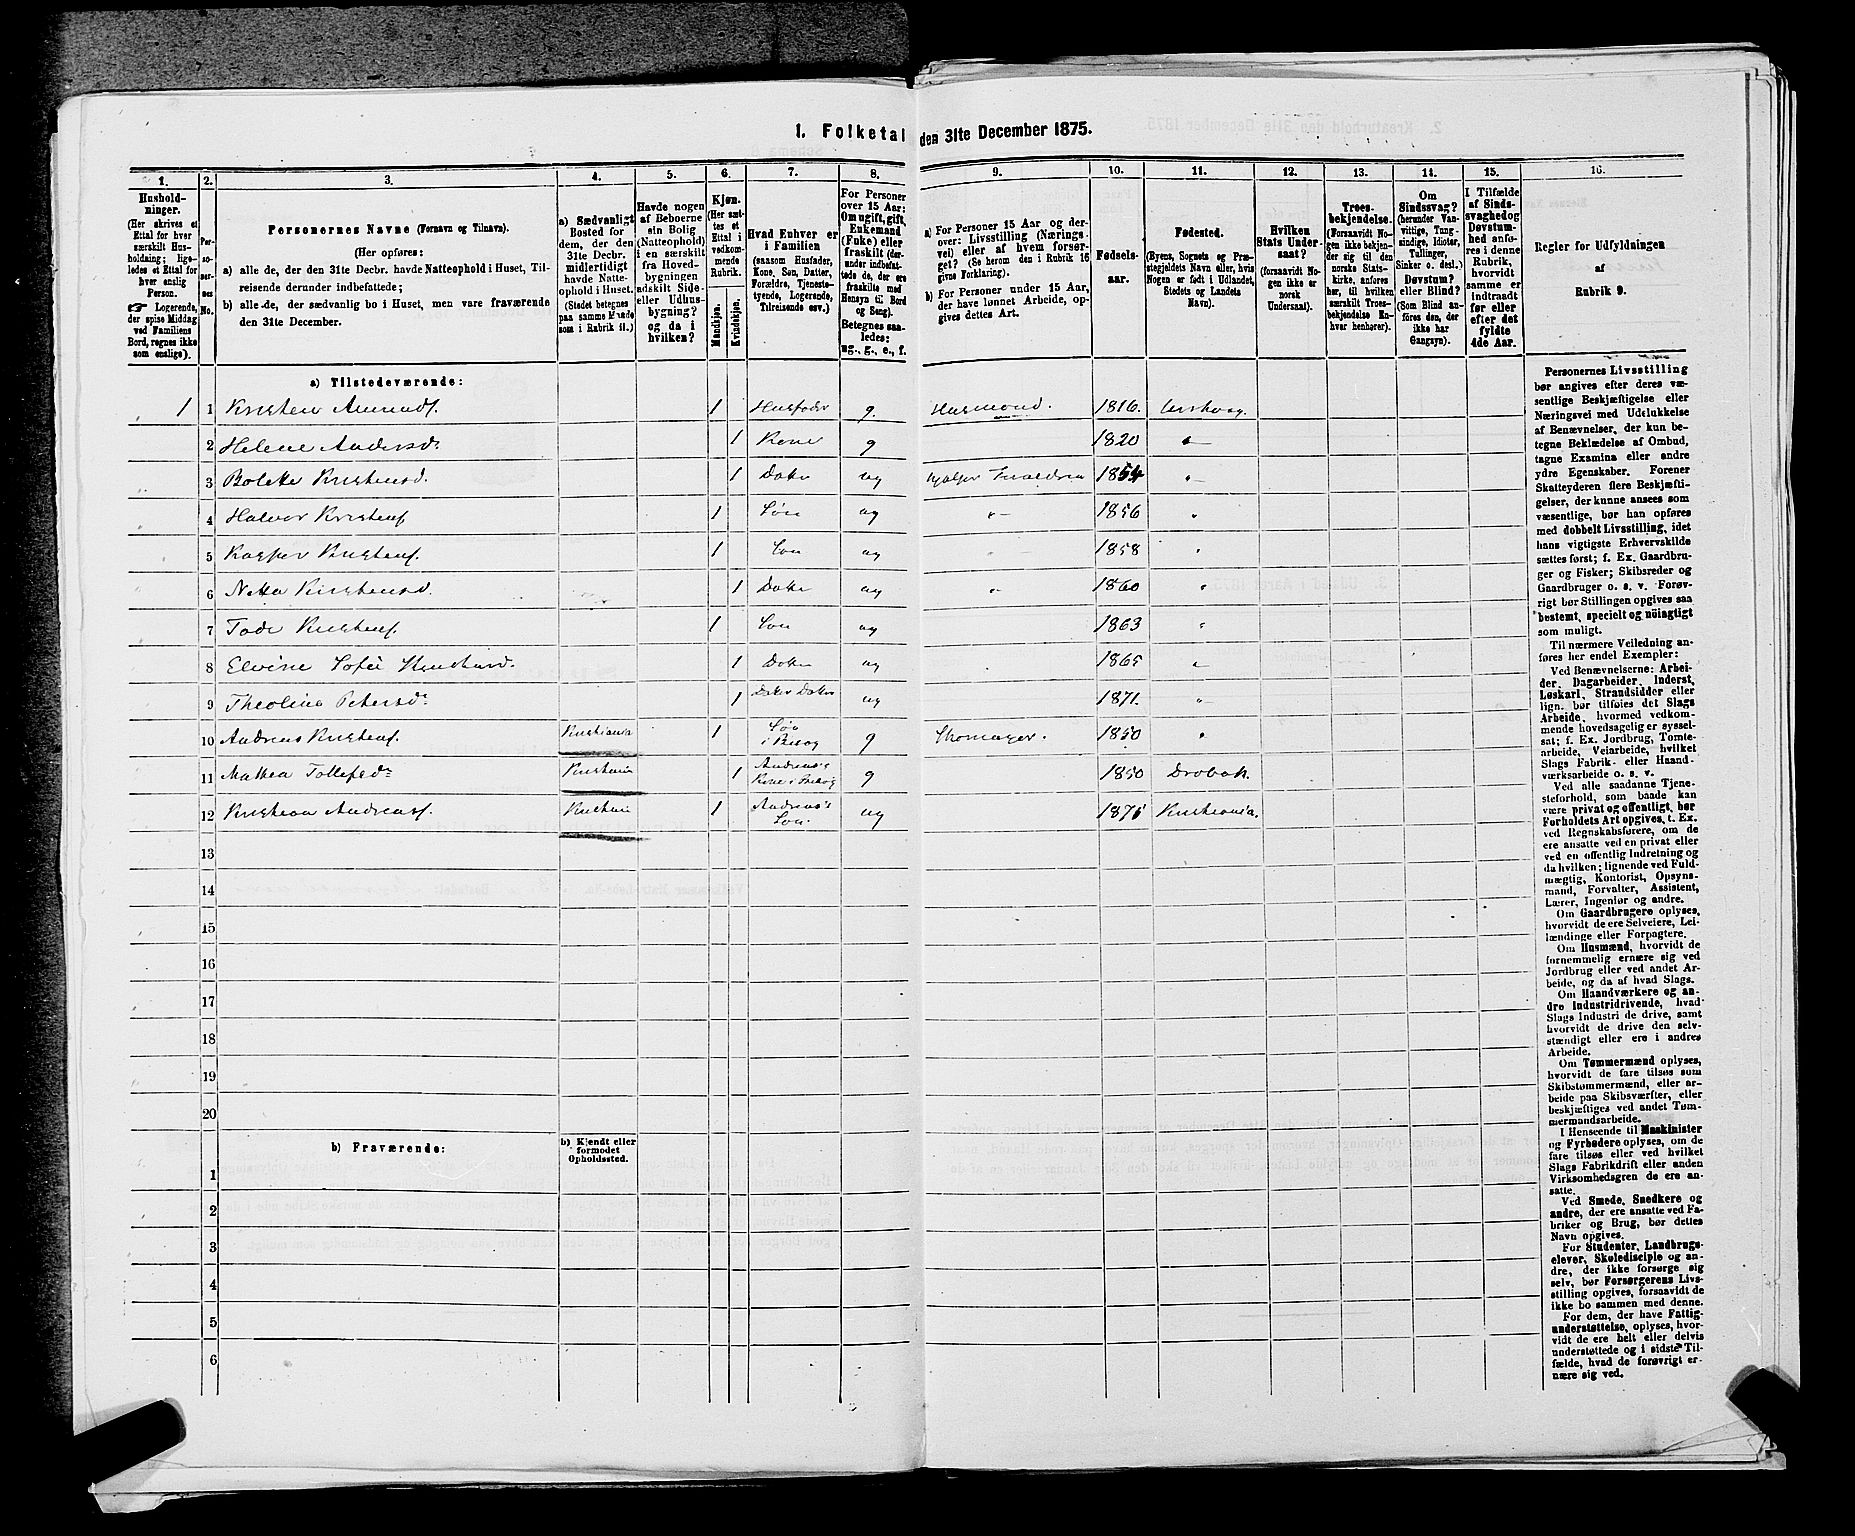 1. Folketal den 31te December 1875.
1. 2. 3. 4. 5. 6. 7. 8. 9. 10. 11. 12. 13. 14. 15. 16.
Hushold-
ninger.
(Her skrives et
Ettal for hver
særskilt Hus-
holdning; lige-
ledes et Ettal for
hver enslig
Person.
☛ Logerende,
der spise Middag
ved Familiens
Bord, regnes ikke
som enslige).
Per-
so-
ner-
nes
No.
Personernes Navne (Fornavn og Tilnavn).
(Her opføres:
a) alle de, der den 31te Decbr. havde Natteophold i Huset, Til-
reisende derunder indbefattede;
b) alle de, der sædvanlig bo i Huset, men vare fraværende
den 31te December.
a) Sædvanligt
Bosted for
dem, der den
31te Decbr.
midlertidigt
havde Natte-
ophold i Huset.
(Stedet betegnes
paa samme Maade
som i Rubrik 11.)
Havde nogen
af Beboerne
sin Bolig
(Natteophold)
i en særskilt
fra Hoved-
bygningen
adskilt Side-
eller Udhus-
bygning?
og da i
hvilken?
Kjøn.
(Her sæt-
tes et
Ettal i
vedkom-
mende
Rubrik.
Mandkjøn.
Kvindekjøn.
Hvad Enhver er
i Familien
(saasom Husfader,
Kone, Søn, Datter,
Forældre, Tjeneste-
tyende, Logerende,
Tilreisende osv.)
For Personer
over 15 Aar:
Om ugift, gift,
Enkemand
(Enke) eller
fraskilt (der-
under indbefat-
tede de, der ere
fraskilte med
Hensyn til Bord
og Seng).
Betegnes saa-
ledes:
ug., g., e., f.
a) For Personer 15 Aar og der-
over: Livsstilling (Nærings-
vei) eller af hvem forsør-
get? (Se herom den i Rubrik 16
givne Forklaring).
b) For Personer under 15 Aar,
der have lønnet Arbeide, op-
gives dettes Art.
Fødsels-
aar.
Fødested.
(Byens, Sognets og Præ-
stegjeldets Navn eller, hvis
Nogen er født i Udlandet,
Stedets og Landets
Navn).
Hvilken
Stats Under-
saat?
(forsaavidt No-
gen ikke er
norsk
Undersaat).
Troes-
bekjendelse.
(Forsaavidt No-
gen ikke bekjen-
der sig til den
norske Stats-
kirke, anføres
her, til hvilken
særskilt Troes-
bekjendelse En-
hver henhører).
Om
Sindssvag?
(herunder Van-
vittige, Tung-
sindige, Idioter,
Tullinger,
Sinker o. desl.)
Døvstum?
eller Blind?
(Som Blind an-
føres den, der
ikke har
Gangsyn).
I Tilfælde
af Sinds-
svaghed og
Døvstum-
hed anfø-
res i denne
Rubrik,
hvorvidt
samme er
indtraadt
før eller
efter det
fyldte
4de Aar.
Regler for Udfyldningen
af
Rubrik 9.
a) Tilstedeværende:
1 1 Kristen Amunds. 1 Husfader g. Husmand. 1816. Urskoug.
2 Helene Andersd. 1 Kone g 1820 "
3 Bolette Kristensd. 1 Datter ug hjelper Foreldren 1854 "
4 Halvor Kristens. 1 Søn ug " 1856 "
5 Kasper Kristens. 1 Søn ug " 1858 "
6 Netta Kristensd. 1 Datter ug " 1860 "
7 Tode Kristens. 1 Søn ug 1863 "
8 Elvine Sofie Kristensd. 1 Datter ug 1865 "
9 Theoline Petersd. 1 Datter Datter ug 1871. "
10 Andreas Kristens. Kristiania 1 Søn i Besøg g Skomager. 1850 "
11 Mathea Tollefsd. Kristiania 1 Andreas's Kone i Besøg g 1850 Drøbak.
12 Kristian Andreas. Kristiania 1 Andreas's Søn. ug 1875 Kristiania.
13
14
15
16
17
18
19
20
b) Fraværende:
b) Kjendt eller
formodet
Opholdssted.
1
2
3
4
5
6
Personernes Livsstilling
bør angives efter deres væ-
sentlige Beskjæftigelse eller
Næringsvei med Udelukkelse
af Benævnelser, der kun be-
tegne Beklædelse af Ombud,
tagne Examina eller andre
ydre Egenskaber. Forener
Skatteyderen flere Beskjæfti-
gelser, der kunne ansees som
væsentlige, bør han opføres
med dobbelt Livsstilling, idet
hans vigtigste Erhvervskilde
sættes først; f. Ex. Gaardbru-
ger og Fisker; Skibsreder og
Gaardbruger o. s. v. Forøv-
rigt bør Stillingen opgives saa
bestemt, specielt og nøiagtigt
som muligt.
Til nærmere Veiledning an-
føres her endel Exempler:
Ved Benævnelserne: Arbei-
der, Dagarbeider, Inderst,
Løskarl, Strandsidder eller
lign. bør tilføies det Slags
Arbeide, hvormed vedkom-
mende hovedsagelig er syssel-
sat; f. Ex. Jordbrug, Tomte-
arbeide, Veiarbeide, hvilket
Slags Fabrik- eller Haand-
værksarbeide o. s. v.
Ved alle saadanne Tjene-
steforhold, som baade kan
være privat og offentligt, bør
Forholdets Art opgives, t. Ex.
ved Regnskabsførere, om de
ere ansatte ved en privat eller
ved en offentlig Indretning og
da hvilken; lignende ved Fuld-
mægtig, Kontorist, Opsyns-
mand, Forvalter, Assistent,
Lærer, Ingeniør og andre.
Om Gaardbrugere oplyses,
hvorvidt de ere Selveiere, Lei-
lændinge eller Forpagtere.
Om Husmænd, hvorvidt de
fornemmelig ernære sig ved
Jordbrug eller ved andet Ar-
beide, og da af hvad Slags.
Om Haandværkere og an-
dre Industridrivende, hvad
Slags Industri de drive, samt
hvorvidt de drive den selv-
stændigt eller ere i andres
Arbeide.
Om Tømmermænd oplyses,
hvorvidt de fare tilsøs som
Skibstømmermænd, eller ar-
beide paa Skibsværfter, eller
beskjæftiges ved andet Tøm-
mermandsarbeide.
I Henseende til Maskinister
og Fyrbødere oplyses, om de
fare tilsøs eller ved hvilket
Slags Fabrikdrift eller anden
Virksomhedsgren de ere an-
satte.
Ved Smede, Snedkere og
andre, der ere ansatte ved Fa-
briker og Brug, bør dettes
Navn opgives.
For Studenter, Landbrugs-
elever, Skoledisciple og an-
dre, der ikke forsørge sig
selv, bør Forsørgerens Livs-
stilling opgives, forsaavidt de
ikke bo sammen med denne.
For dem, der have Fattig-
understøttelse, oplyses, hvor-
vidt de ere helt eller delvis
understøttede og i sidste Til-
fælde, hvad de forøvrigt er-
nære sig ved.